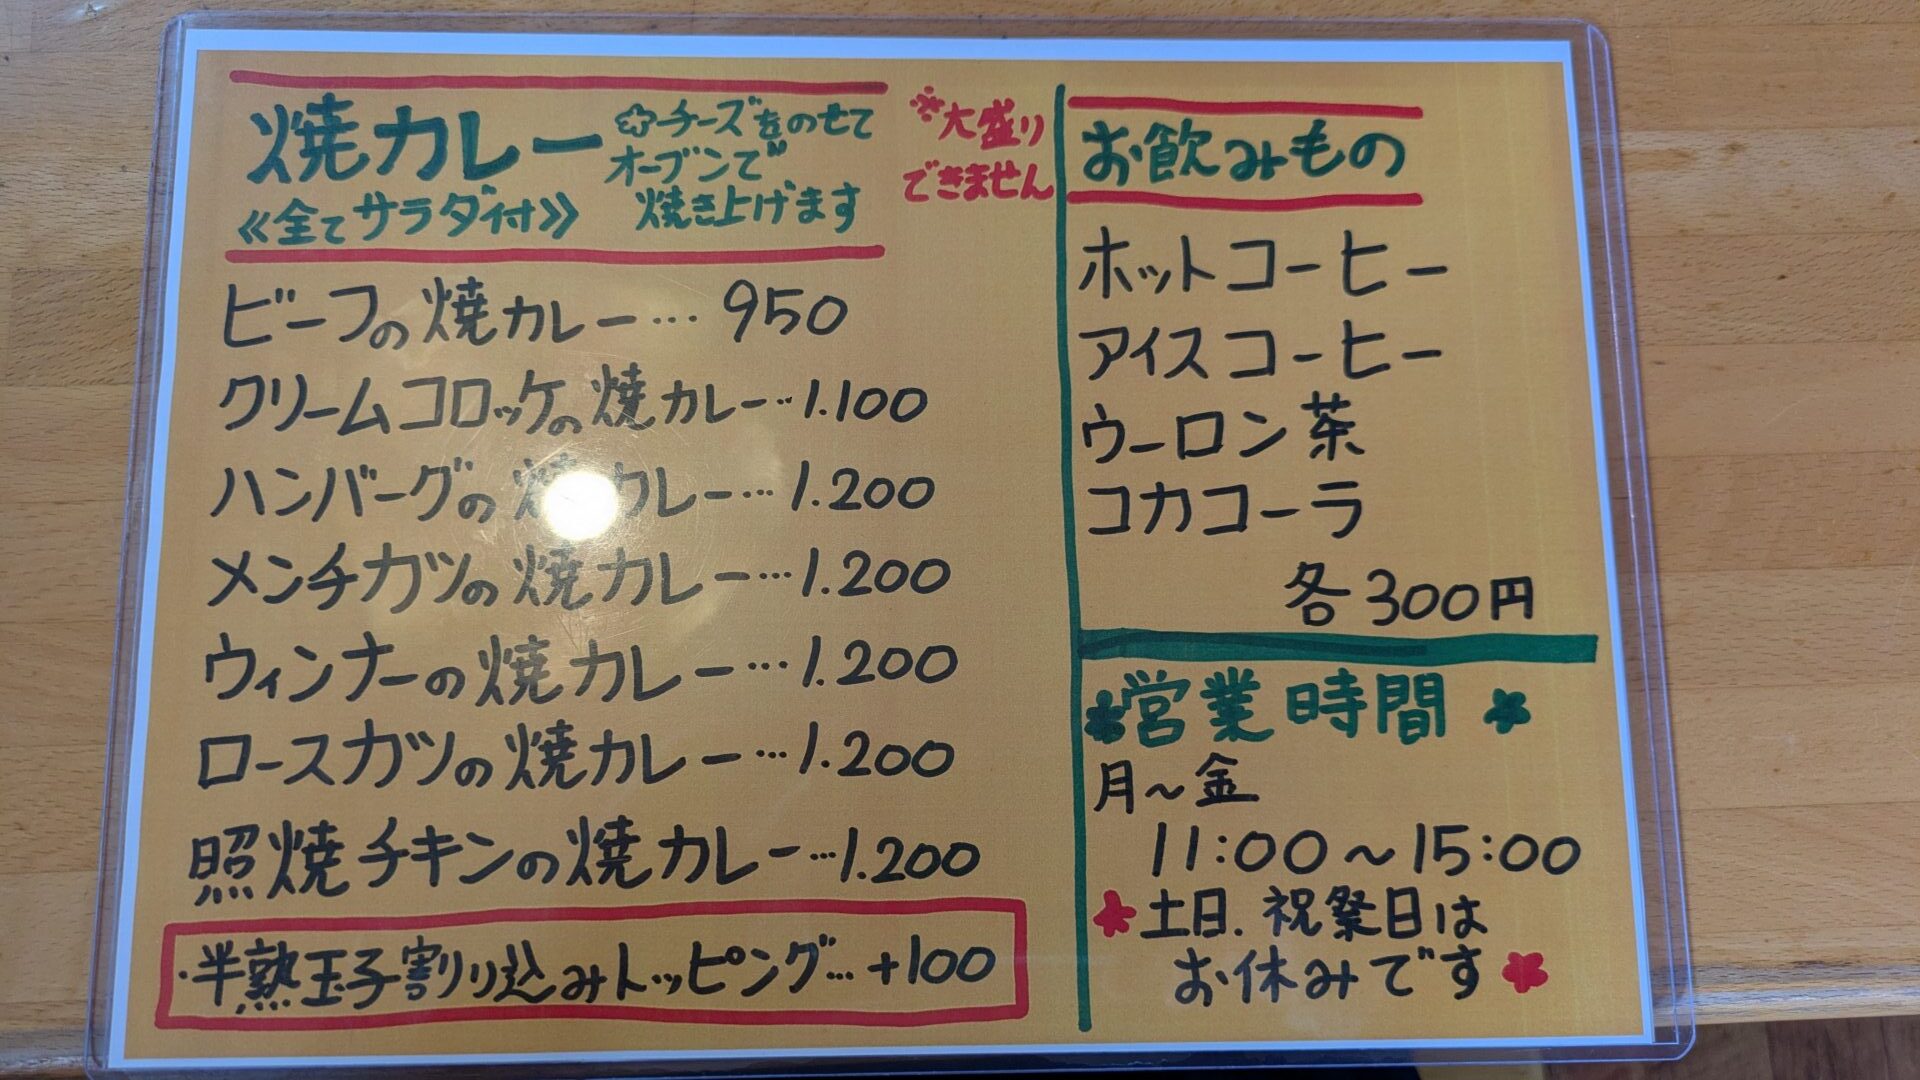 焼カレー
《全てサラダ付》
✿チーズをのせて
オーブンで
焼き上げます
※大盛り
できません
ビーフの焼カレー… 950
クリームコロッケの焼カレー…1.100
ハンバーグの焼カレー…1.200
メンチカツの焼カレー…1.200
ウィンナーの焼カレー…1.200
ロースカツの焼カレー…1.200
照焼チキンの焼カレー…1.200
・半熟玉子割り込みトッピング…+100
お飲みもの
ホットコーヒー
アイスコーヒー
ウーロン茶
コカコーラ
各300円
営業時間
月～金
11:00～15:00
土日.祝祭日は
お休みです